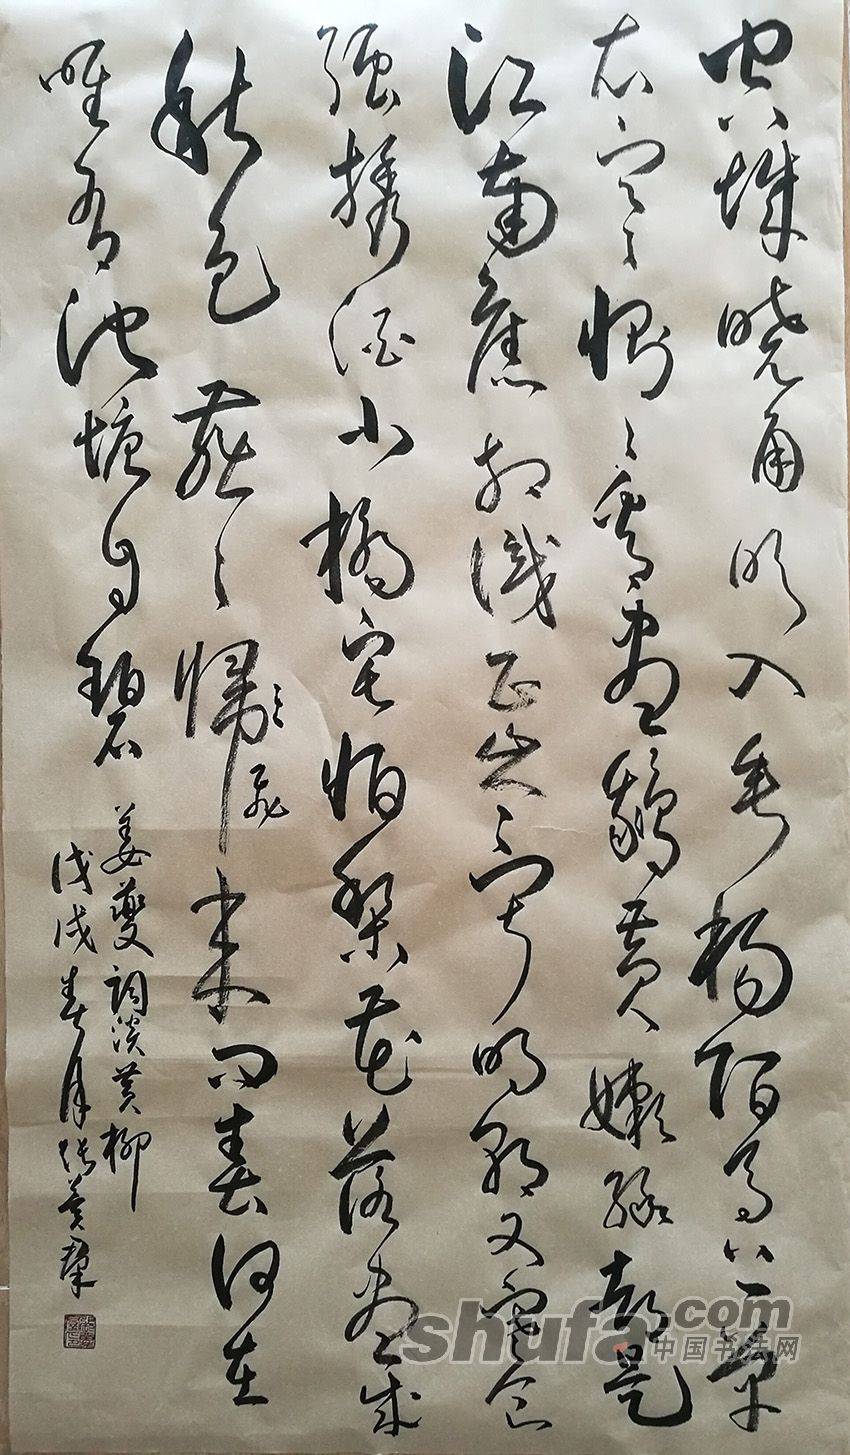 空城晓角吹入垂杨陌马上单
衣寒恻〻看尽鹅黄嫩绿都是
江南旧相识正岑寂明朝又寒食
强携酒小桥宅怕梨花落尽成
秋色燕〻歸飛来问春何在
唯有池塘自碧
姜夔词淡黄柳
戊戌春月张
shufa.com
中国书法网